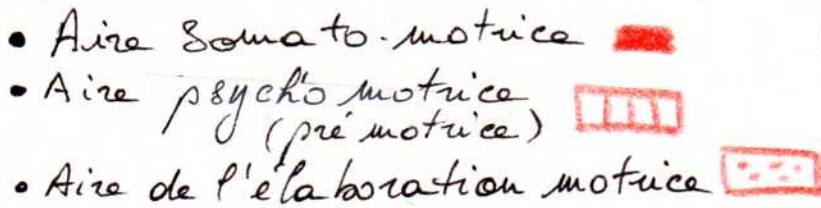 • Aire Somato-motrice
• Aire psycho motrice
(pré motrice)
• Aire de l'élaboration motrice